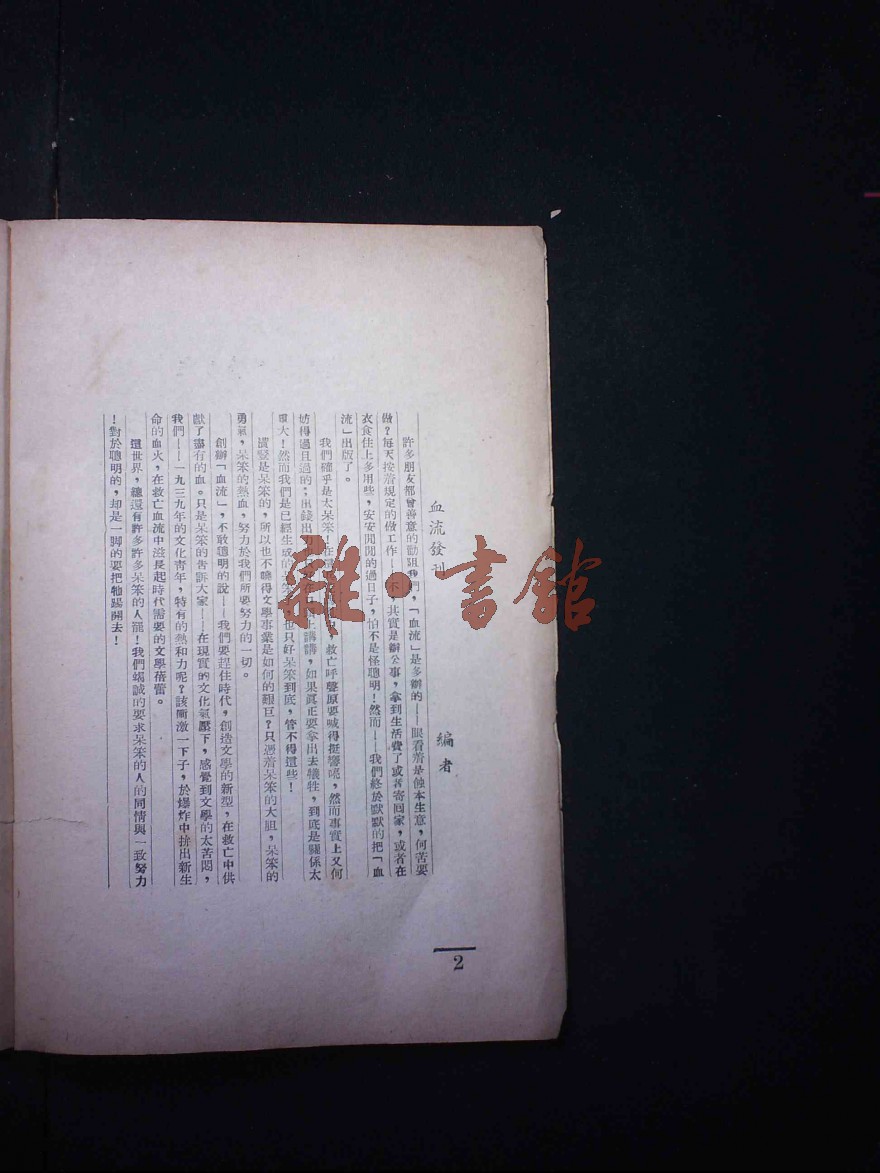 血流發刊
編者
許多朋友都曾善意的勸阻我們，「血流」是多辦的——眼看着是蝕本生意，何苦要
做？每天按着規定的做工作——不，其實是辦公事，拿到生活費了或者寄回家，或者在
衣食住上多用些，安安閒閒的過日子，怕不是怪聰明！然而——我們終於默默的把「血
流」出版了。
我們確乎是太呆笨！在 救亡呼聲原要喊得挺響呃，然而事實上又何
妨得過且過的；出錢出 上講講，如果眞正要拿出去犧牲，到底是關係太
重大！然而我們是已經生成的 也只好呆笨到底，管不得這些！
潰竪是呆笨的，所以也不曉得文學事業是如何的艱巨？只憑着呆笨的大胆，呆笨的
勇氣，呆笨的熱血，努力於我們所要努力的一切。
創辦「血流」，不敢聰明的說——我們要趕住時代，創造文學的新型，在救亡中供
獻了盡有的血。只是呆笨的吿訴大家——在現實的文化氣壓下，感覺到文學的太苦悶，
我們——一九三九年的文化靑年，特有的熱和力呢？該衝激一下子，於爆炸中拚出新生
命的血火，在救亡血流中滋長起時代需要的文學蓓蕾。
這世界，總還有許多許多呆笨的人罷！我們竭誠的要求呆笨的人的同情與一致努力
！對於聰明的，却是一脚的要把牠踢開去！
2
雜·書館